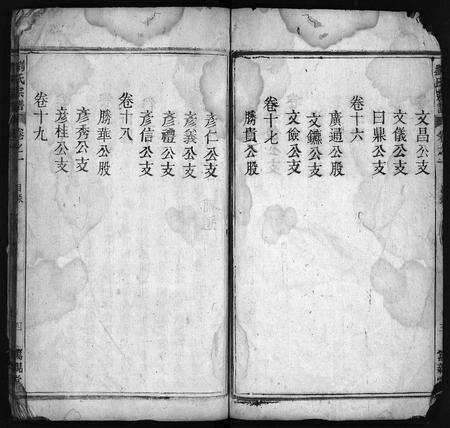 文昌公支
文儀公支
曰鼎公支
卷十六
廣通公股
文鑣公支
文儉公支
卷十七
勝貴公股
彥仁公支
彥義公支
彥禮公支
彥信公支
卷十八
勝華公股
彥秀公支
彥桂公支
卷十九
劉氏宗譜
卷之一
目錄